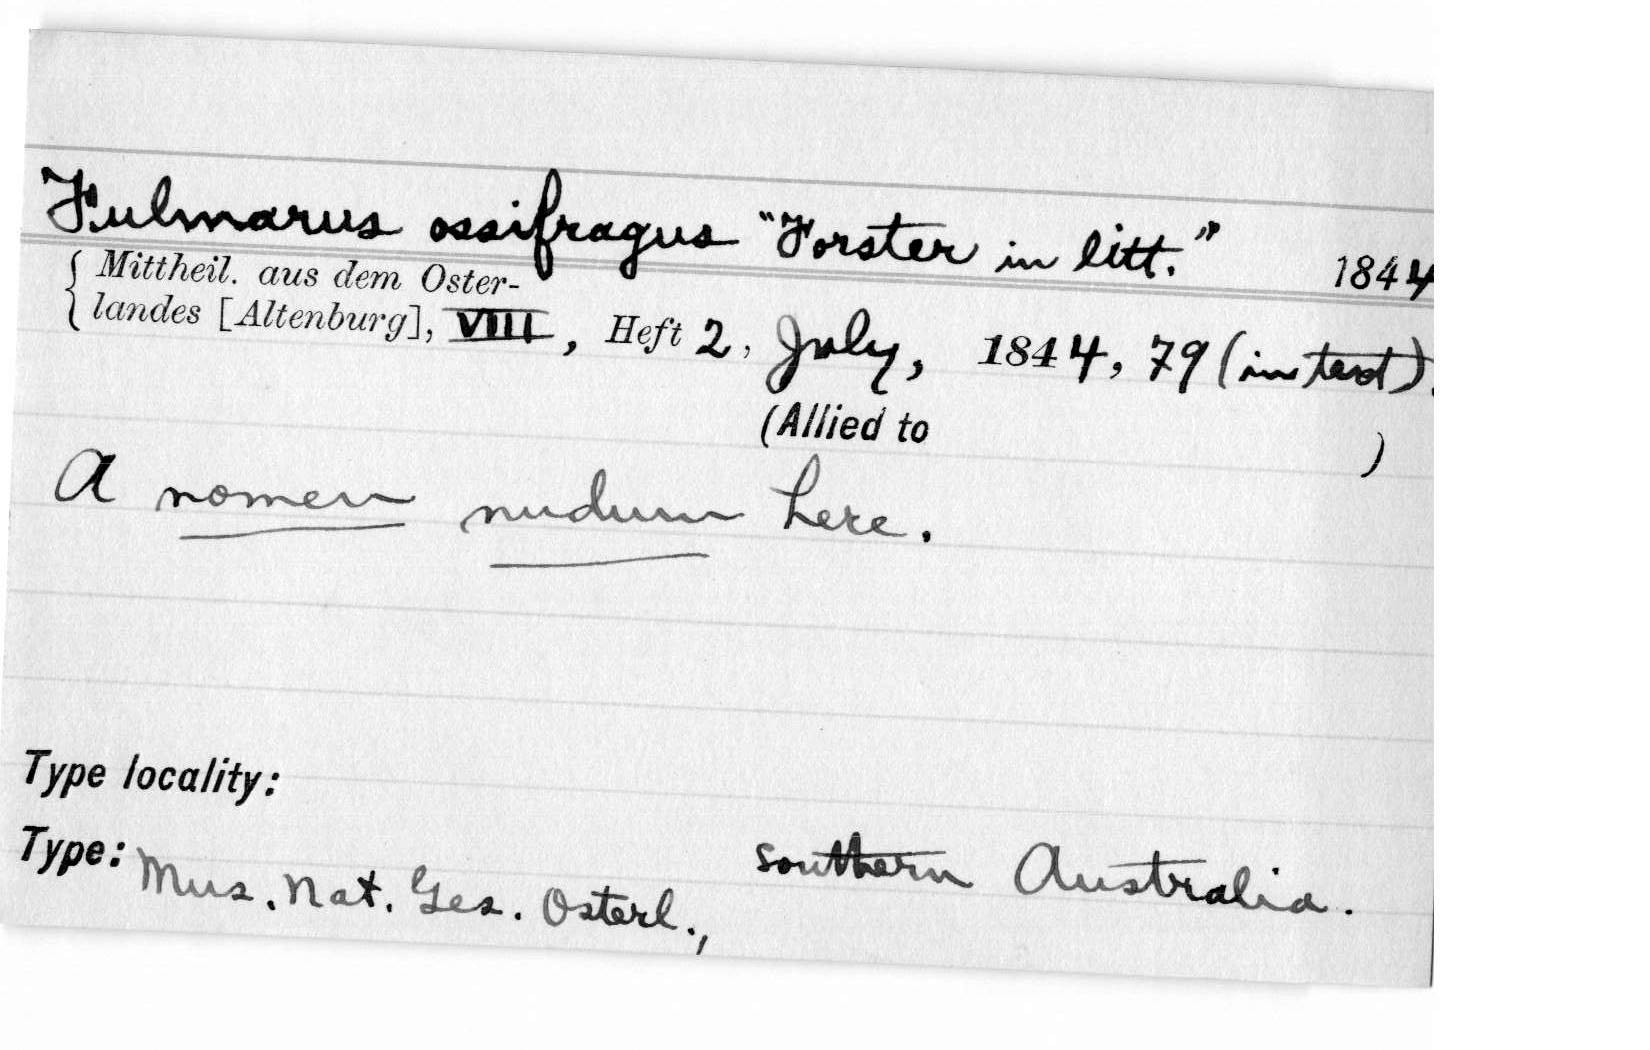 Fulmarus ossifragus "Forster in litt." 1844
{ Mittheil. aus dem Oster-
landes [Altenburg], VIII, Heft 2, July, 1844, 79 (in text).
(Allied to )
A nomen nudum here.
Type locality:
Type: Mus. Nat. Ges. Osterl., southern Australia.